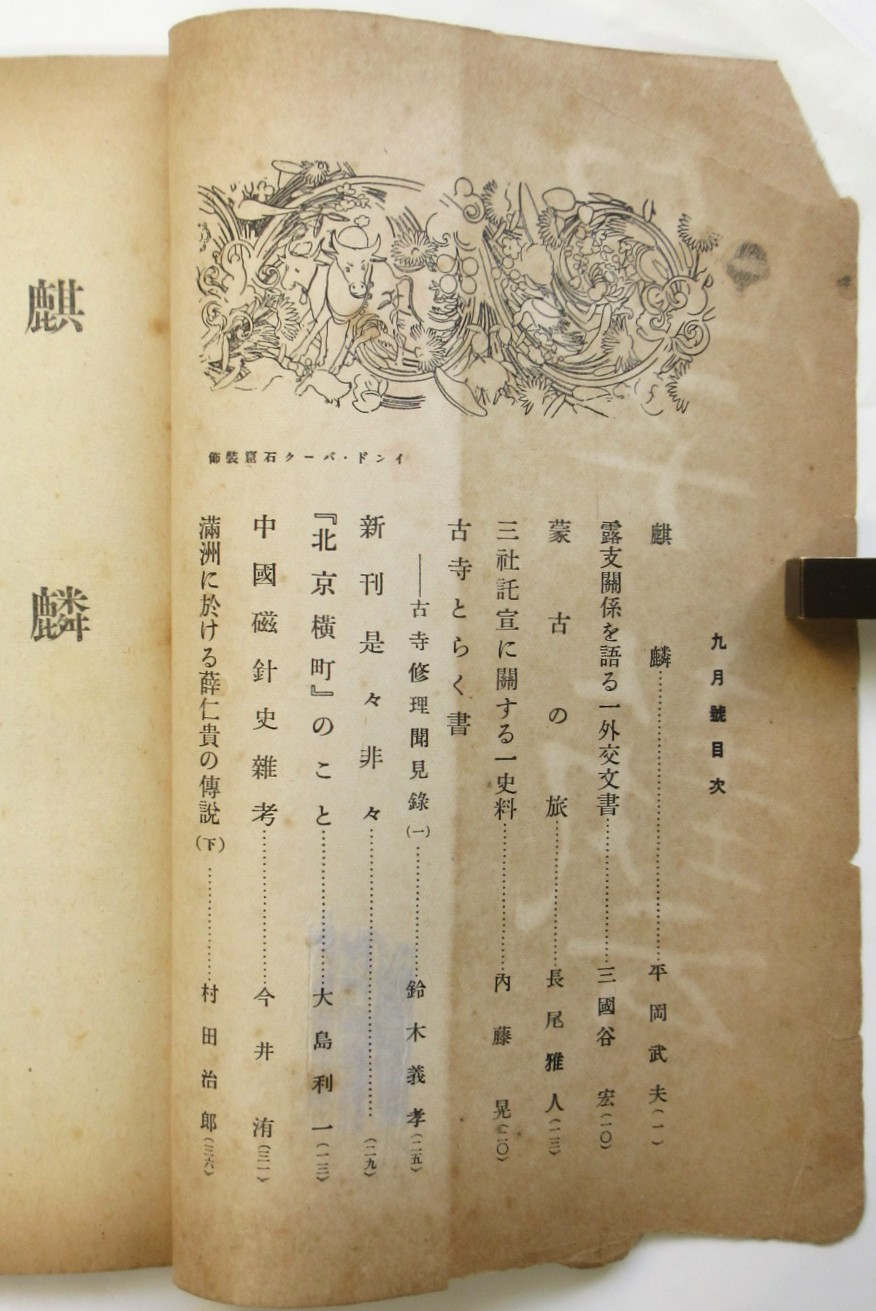 九月號目次
麒麟……………平岡武夫(一)
露支關係を語る一外交文書……………三國谷宏(一〇)
蒙古の旅……………長尾雅人(一三)
三社託宣に關する一史料……………內藤晃(二〇)
古寺とらく書
——古寺修理聞見錄(一)……………鈴木義孝(二五)
新刊是々非々……………(二九)
『北京橫町』のこと……………大島利一(一三)
中國磁針史雜考……………今井洧(三一)
滿洲に於ける薛仁貴の傳說(下)……………村田治郎(三六)
インド・バーク石窟裝飾
麒麟